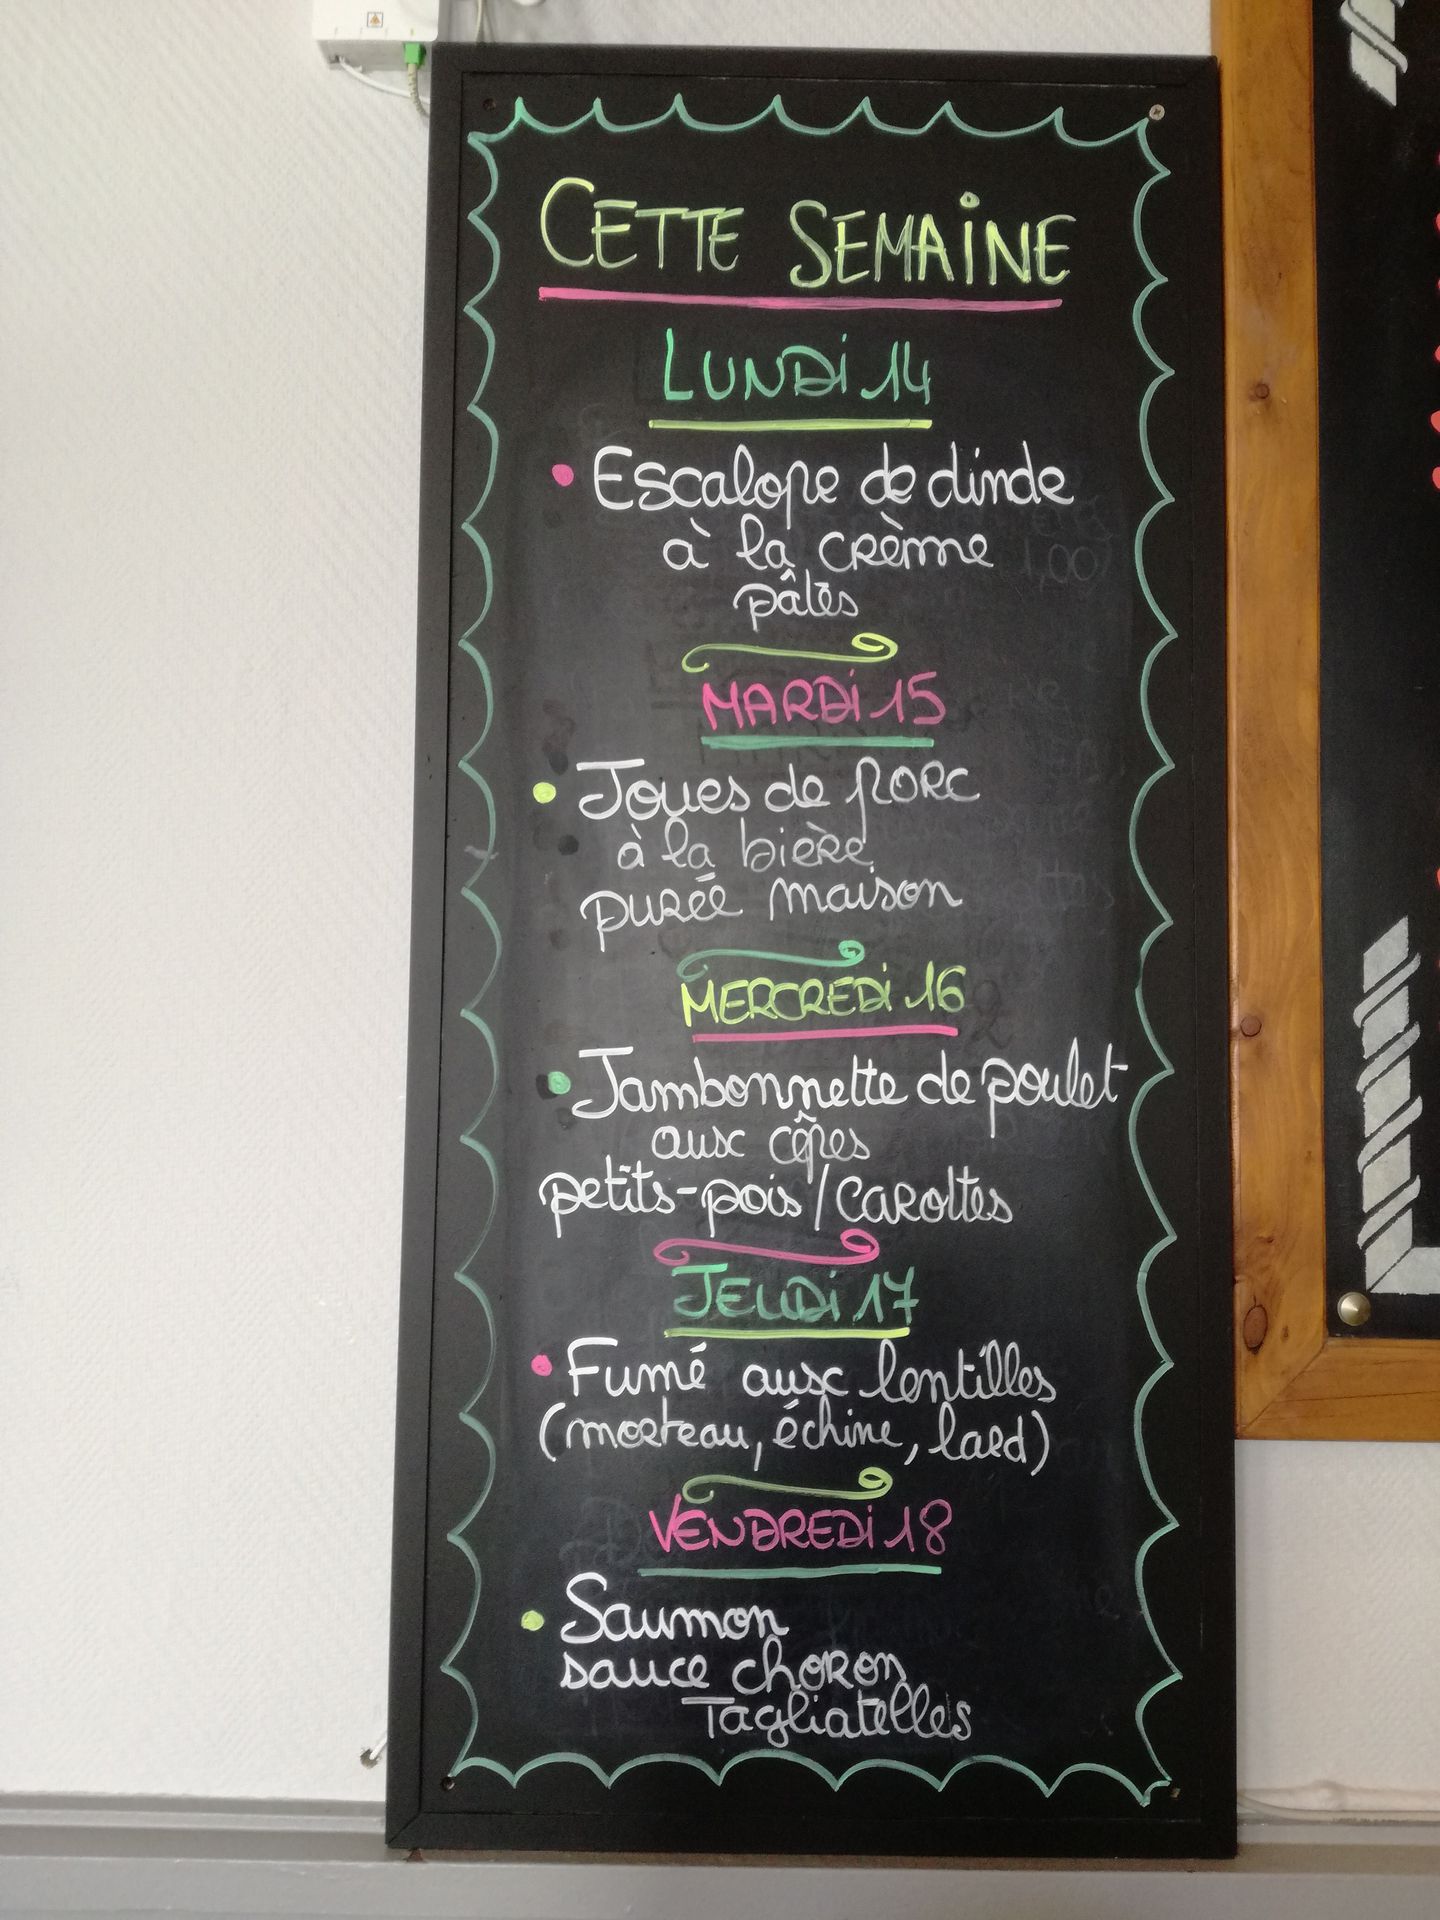 CETTE SEMAINE
LUNDI 14
• Escalope de dinde
à la crème
pâtes
MARDI 15
• Joues de porc
à la bière
purée maison
MERCREDI 16
• Jambonnette de poulet
aux cêpes
petits-pois/carottes
JEUDI 17
• Fumé aux lentilles
(morteau, échine, lard)
VENDREDI 18
• Saumon
sauce choron
Tagliatelles